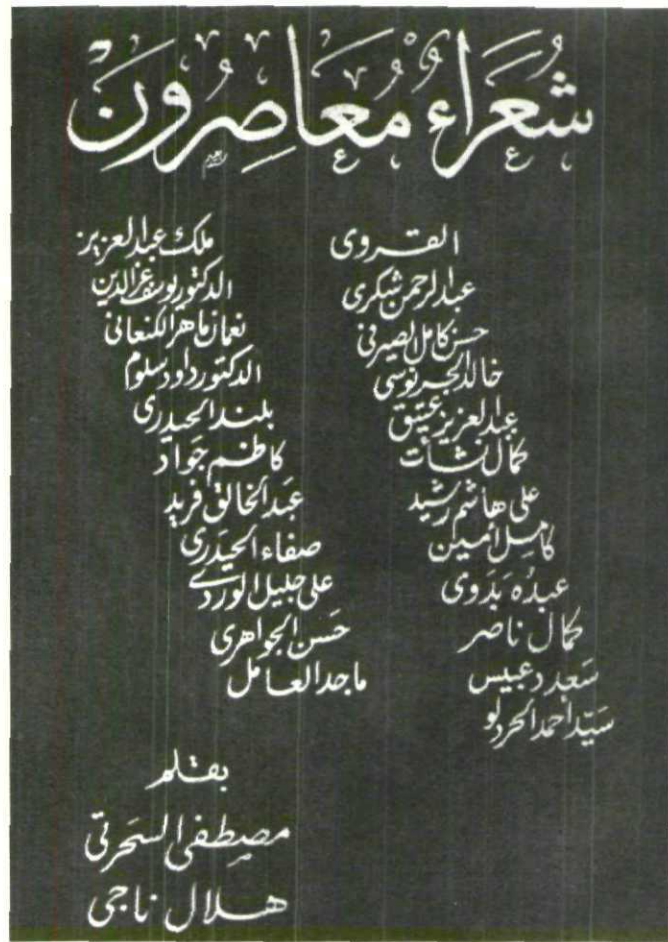 شُعَرَاءُ مُعَاصِرُونَ
القروى
عبدالرحمن شكرى
حسن كامل الصيرفى
خالد الجرنوسى
عبدالعزيز عتيق
كمال نشأت
على هاشم رشيد
كامل أمين
عبدُه بَدَوى
كمال ناصر
سَعد دعبيس
سَيّد أحمد الحردلو
ملك عبدالعزيز
الدكتور يوسف عزالدين
نعمان ماهر الكنعانى
الدكتور داود سلوم
بلند الحيدرى
كاظم جَواد
عبَد الخالق فريد
صفاء الحيدَرى
على جليل الوردى
حَسن الجواهرى
ماجد العامل
بقلم
مصطفى السحرتى
هلال ناجى